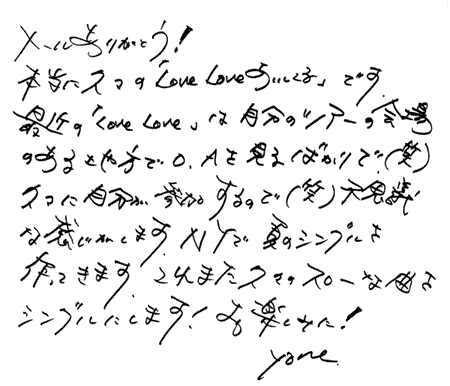 メールありがとう!
本当にスマの「Love Loveあいしてる」です
最近の「Love Love」は自分のツアーの会場
のあるとこでO.Aを見るばかりで(笑)
スマに自分が参加するので(笑)不思議
な感じがします。NYで夏のシングルを
作ってきます。これまたスマのスローな曲を
シングルにします!お楽しみに!
yone